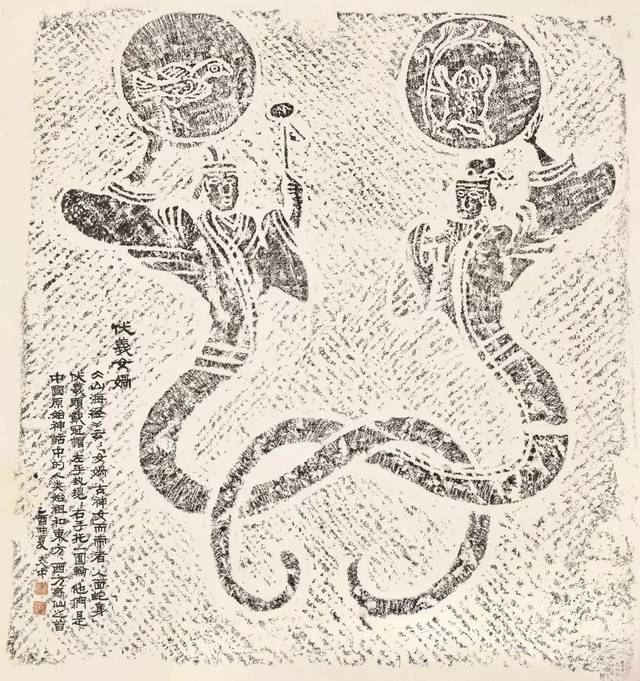 伏羲女媧
《山海經》云：女媧，古神女而帝者，人面蛇身
伏羲頭戴冠，左手執規，右手托一圓輪，他們是
中國原始神話中的人类始祖和東方、西方仙之首
乙酉仲夏